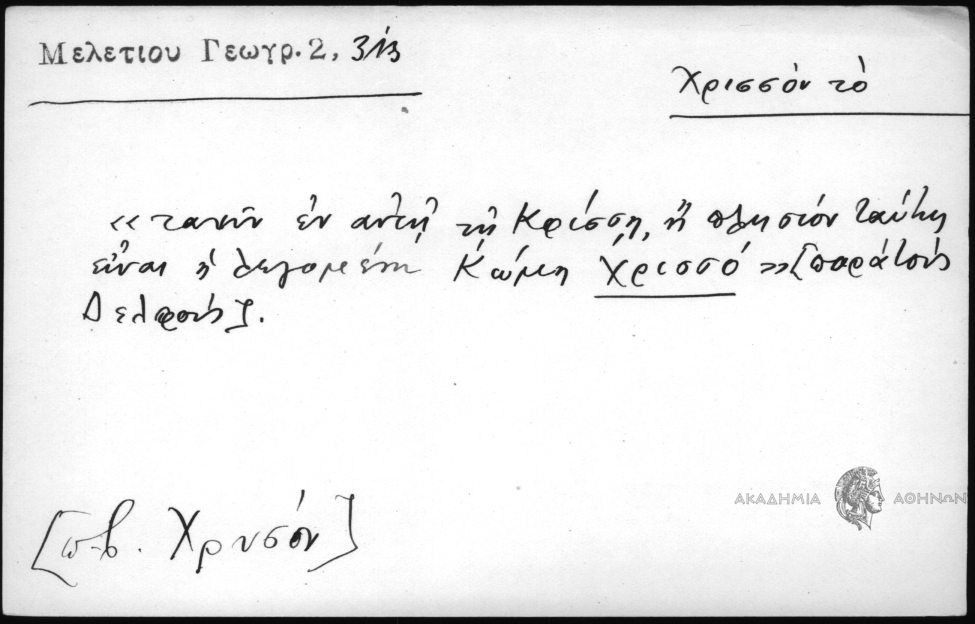 Μελετίου Γεωγρ. 2, 313
Χρισσόν τὸ
«τανῦν ἐν αὐτῇ τῇ Κρίσσῃ, ἢ πλησίον ταύτης
εἶναι ἡ λεγομένη Κώμη Χρισσό» [παρὰ τοὺς
Δελφούς].
[π.β. Χρυσόν]
ΑΚΑΔΗΜΙΑ ΑΘΗΝΩΝ